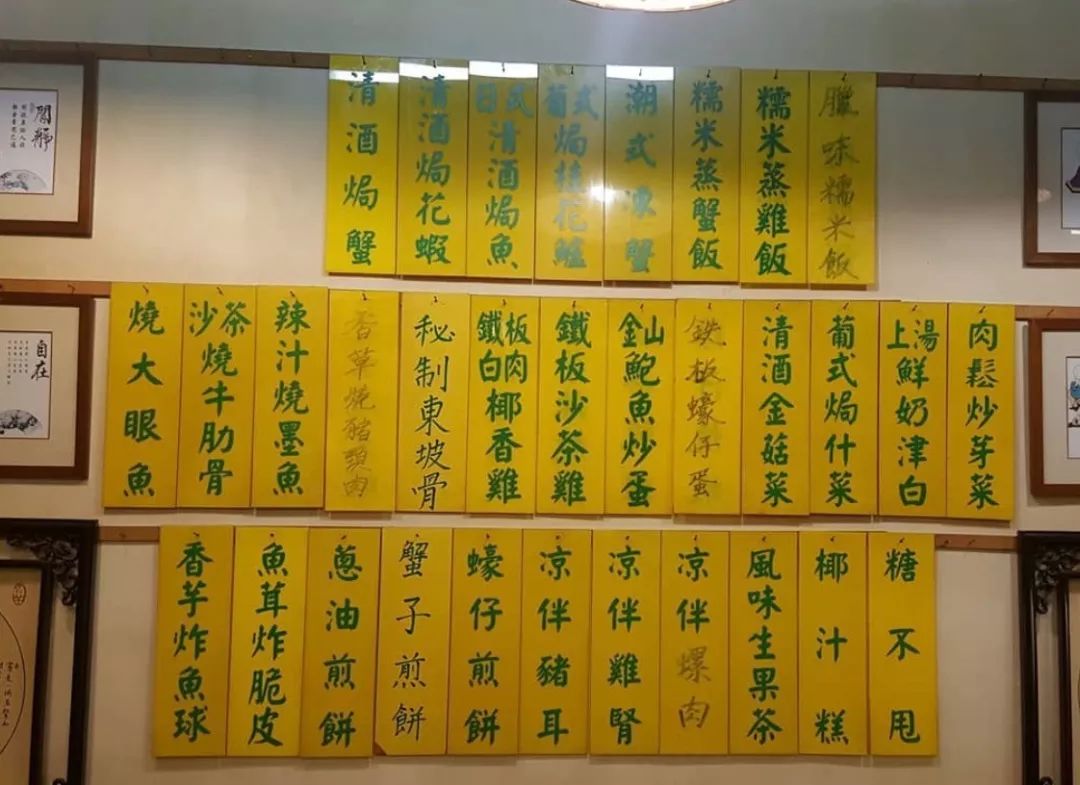 清酒焗蟹
清酒焗花蝦
日式清酒焗魚
葡式焗桂花鱸
潮式凍蟹
糯米蒸蟹飯
糯米蒸雞飯
臘味糯米飯
燒大眼魚
沙茶燒牛肋骨
辣汁燒墨魚
香草燒豬頸肉
秘制東坡骨
鐵板白肉椰香雞
鐵板沙茶雞
金山鮑魚炒蛋
鉄板蠔仔蛋
清酒金菇菜
葡式焗什菜
上湯鮮奶津白
肉鬆炒芽菜
香芋炸魚球
魚茸炸脆皮
蔥油煎餅
蟹子煎餅
蠔仔煎餅
凉伴豬耳
凉伴雞腎
凉伴螺肉
風味生果茶
椰汁糕
糖不甩
自在